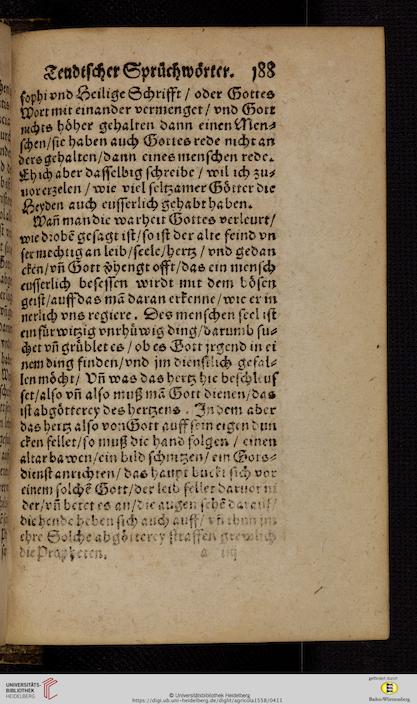 Teudtscher Sprüchwörter. 188
sophi vnd Heilige Schrifft / oder Gottes
Wort mit einander vermenget / vnd Gott
nichts höher gehalten dann einen Men-
schen/sie haben auch Gottes rede nicht an
ders gehalten/dann eines menschen rede.
Eh ich aber dasselbig schreibe / wil ich zu-
uor erzelen / wie viel seltzamer Götter die
Heyden auch eusserlich gehabt haben.
Wañ man die warheit Gottes verleurt/
wie drobẽ gesagt ist/so ist der alte feind vn
ser mechtig an leib/seele/hertz / vnd gedan
cken/vñ Gott v̈hengt offt/das ein mensch
eusserlich besessen wirdt mit dem bösen
geist/auff das mã daran erkenne/wie er in
nerlich vns regiere. Des menschen seel ist
ein fürwitzig vnrhüwig ding/darumb su-
chet vñ grüblet es / ob es Gott jrgend in ei
nem ding finden/vnd jm dienstlich gefal-
len möcht/ Vñ was das hertz hie beschleuſ
set/also vñ also muß mã Gott dienen/das
ist abgötterey des hertzens . Indem aber
das hertz also von Gott auff sein eigen dun
cken fellet/so muß die hand folgen / einen
altar bawen/ein bild schnitzen/ein Gots-
dienst anrichten/ das haupt buckt sich vor
einem solchẽ Gott/der leib fellet daruor ni
der/vñ betet es an/die augen sehẽ darauf/
die hende heben sich auch auff/ vñ thun jm
ehre Solche abgötterey straffen grewlich
die Propheten. a iiij
UNIVERSITÄTS-
BIBLIOTHEK
HEIDELBERG
© Universitätsbibliothek Heidelberg
https://digi.ub.uni-heidelberg.de/diglit/agricola1558/0411
gefördert durch
Baden-Württemberg